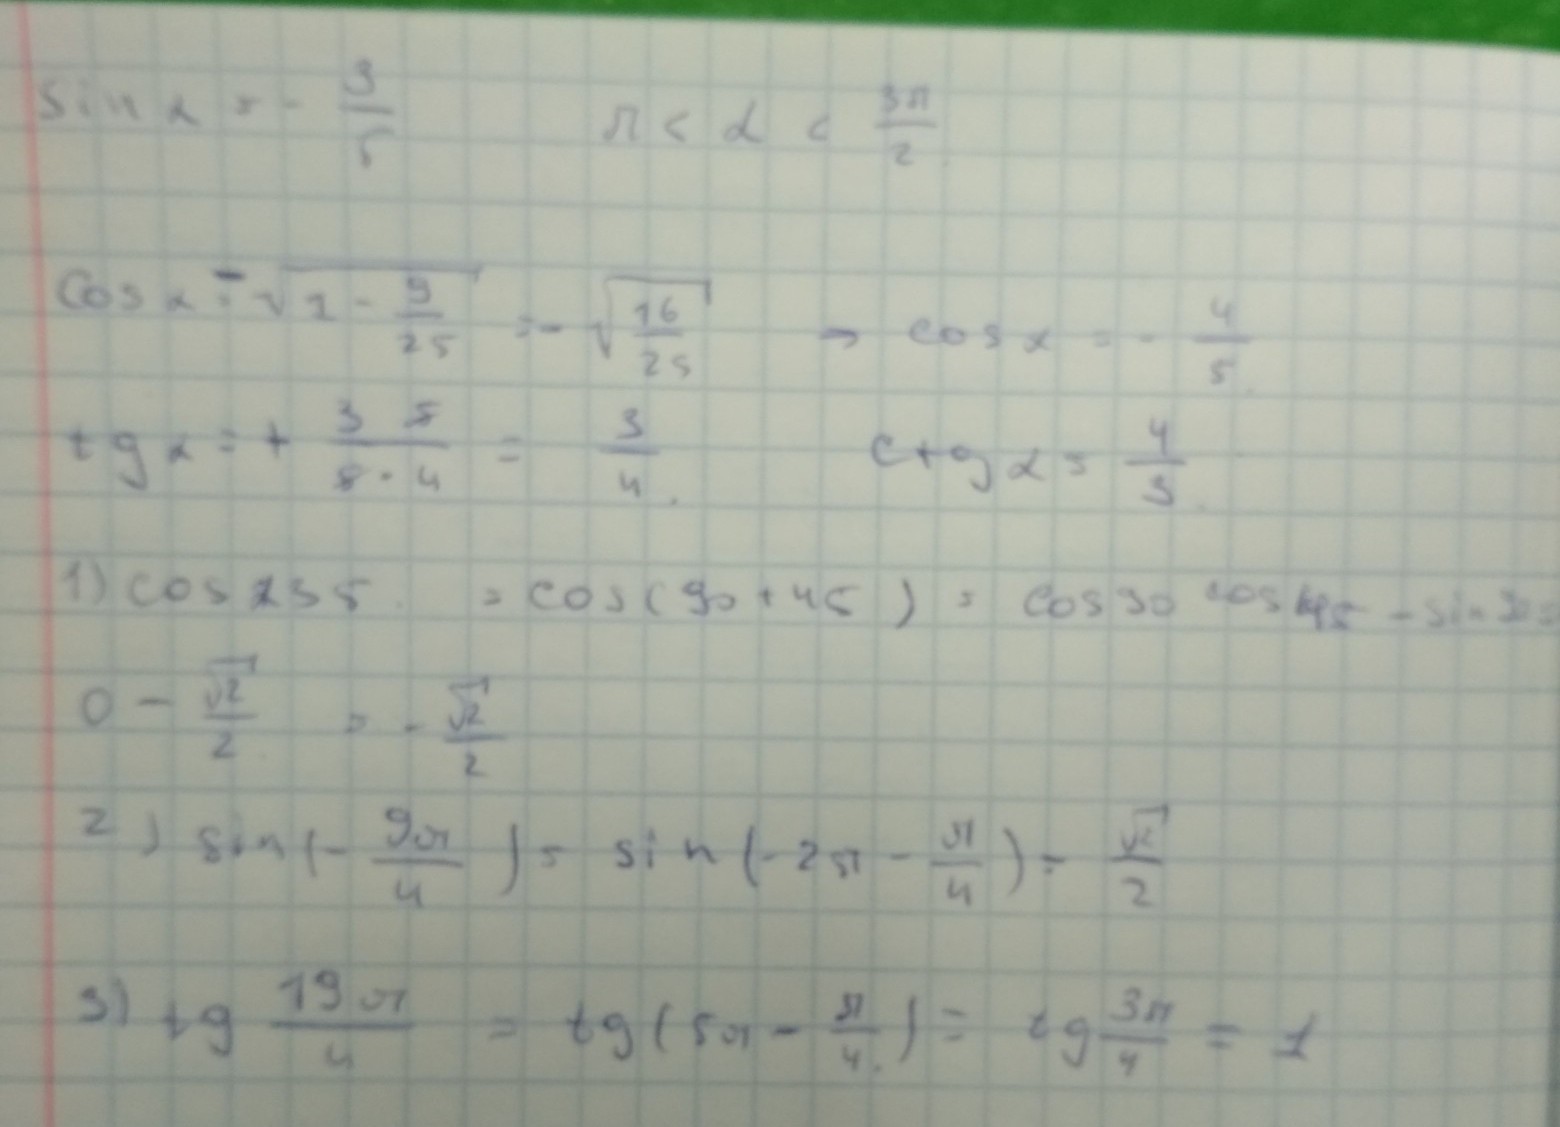 sin α = - 3/5 π < α < 3π/2
cos α = -√(1 - 9/25) = -√(16/25) → cos α = - 4/5
tg α = + (3 5)/(5 · 4) = 3/4. ctg α = 4/3
1) cos 135 = cos(90 + 45) = cos 90 cos 45 - sin 90
0 - √2/2 = - √2/2
2) sin(- 9π/4) = sin(-2π - π/4) = √2/2
3) tg 19π/4 = tg(5π - π/4) = tg 3π/4 = 1